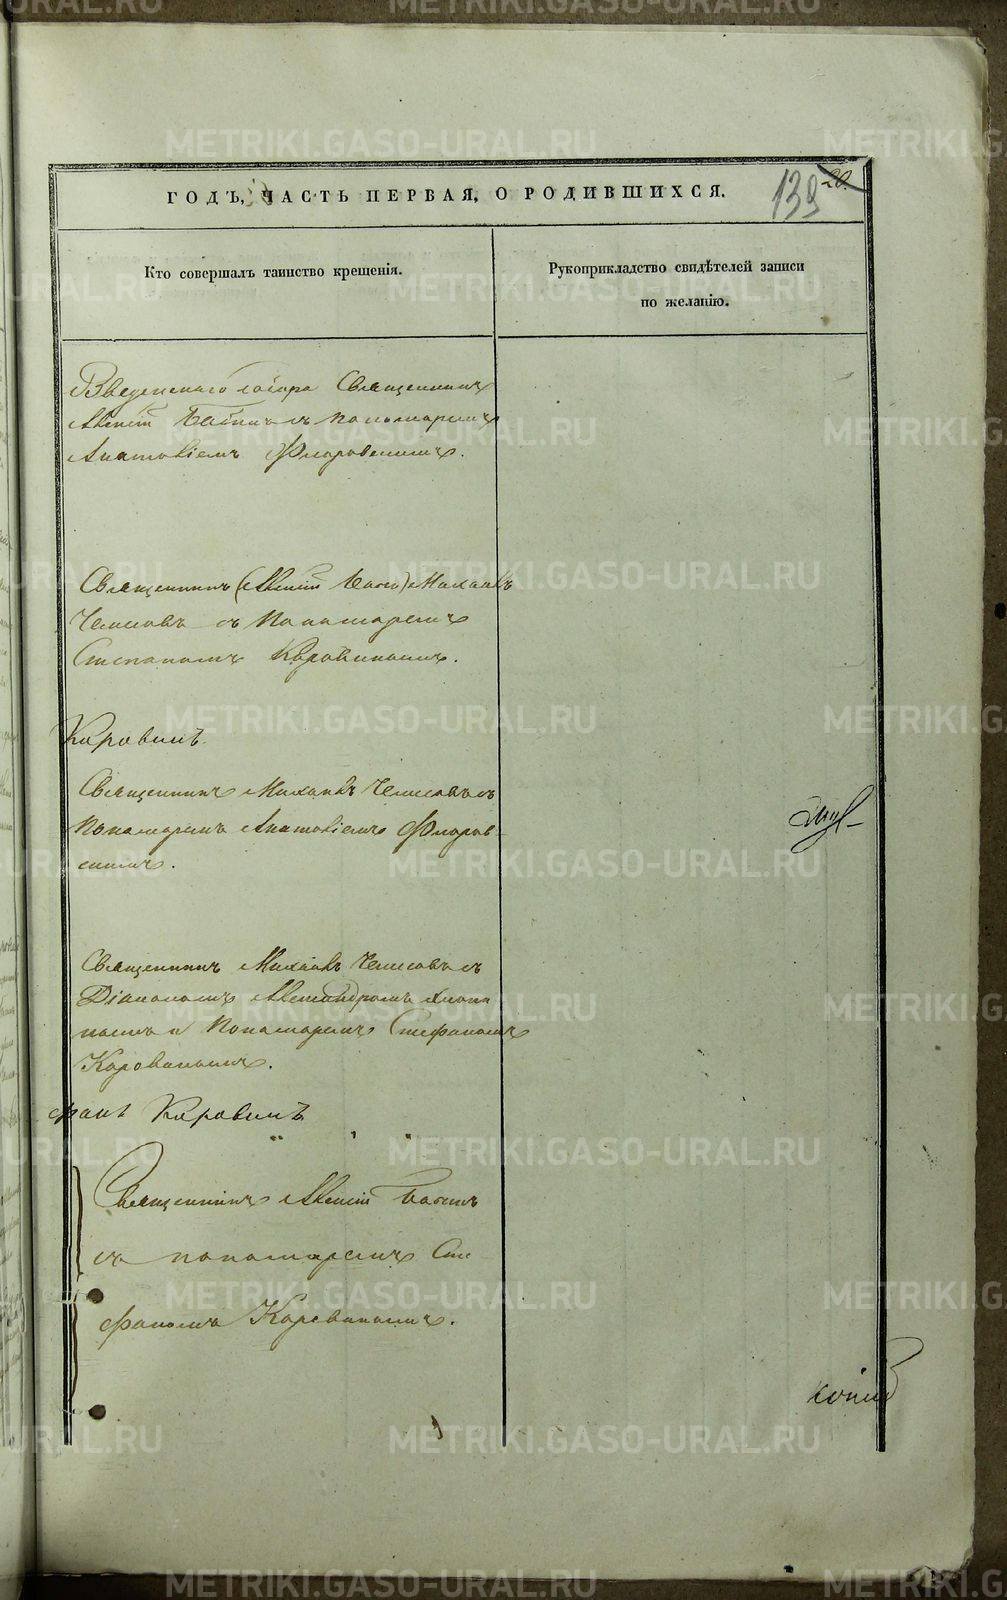 ГОДЪ, ЧАСТЬ ПЕРВАЯ, О РОДИВШИХСЯ.
139 20.
Кто совершалъ таинство крещенія.
Рукоприкладство свидѣтелей записи
по желанію.
Введенскаго собора Священникъ
съ пономаремъ
Анатоліемъ Флоровскимъ.
Священникъ Михаилъ
съ Пономаремъ
Степаномъ Коровинымъ.
Коровинъ
Священникъ Михаилъ
Пономаремъ Анатоліемъ Флоров-
скимъ.
Священникъ Михаилъ
Діакономъ Александромъ
и Пономаремъ Стефаномъ
Коровинымъ.
фанъ Коровинъ
Священникъ Алексій
съ пономаремъ Сте
фаномъ Коровинымъ.
METRIKI.GASO-URAL.RU